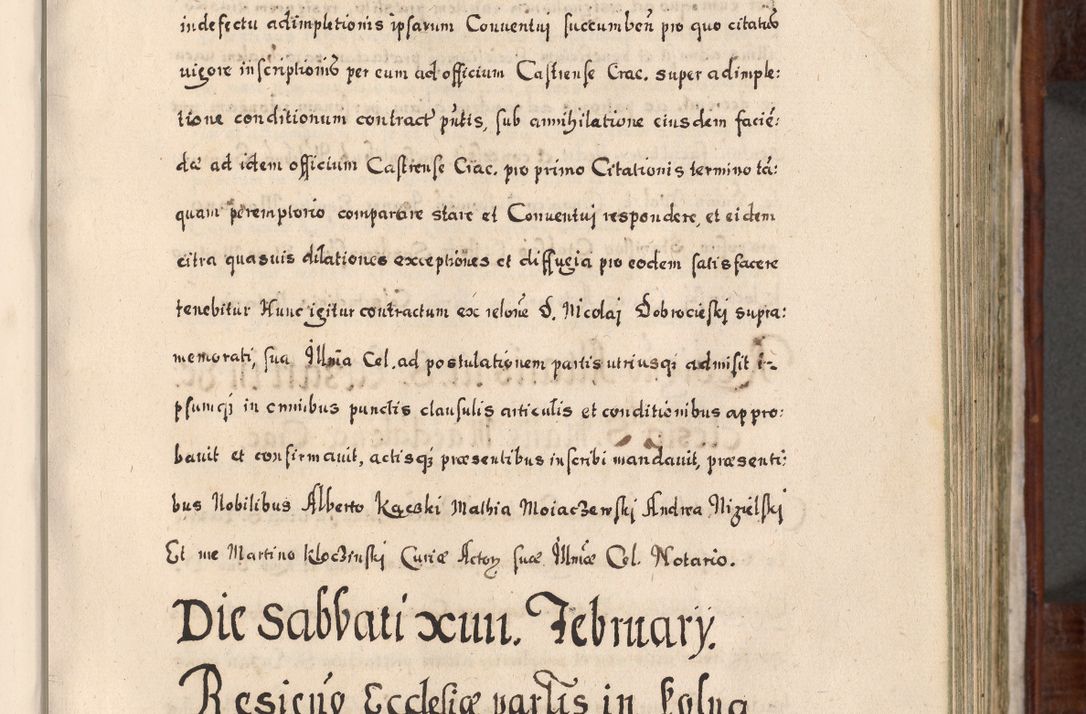 indefectu adimpletionis ipsarum Conuentuj succumbeñ pro quo citatus
uigore inscriptionis per eum ad officium Castrense Crac. super adimple:
tione conditionum contract pñtis, sub annihilatione eiusdem facié:
dæ ad idem officium Castrense Crac. pro primo Citationis termino tã:
quam peremptorio comparare stare et Conuentuj respondere, et eidem
citra quasuis dilationes exceptiones et diffugia pro eodem satisfacere
tenebitur Hunc igitur contractum ex relone D. Nicolaj Dobrocieskj supra:
memorati, sua Illma Cel. ad postulationem partis utriusqꝫ admisit i-
psumqꝫ in omnibus punctis clausulis articulis et conditionibus appro:
bauit et confirmauit, actisqꝫ præsentibus inscribi mandauit, præsenti:
bus Nobilibus Alberto Kącski Mathia Moiaczewskj Andrea Nizielskj
Et me Martino Kloczinskj Curiæ Actorꝝ suæ Illmæ Cel. Notario.
Die Sabbati xiiii. February.
Resigño Ecclesiæ partis in Polna